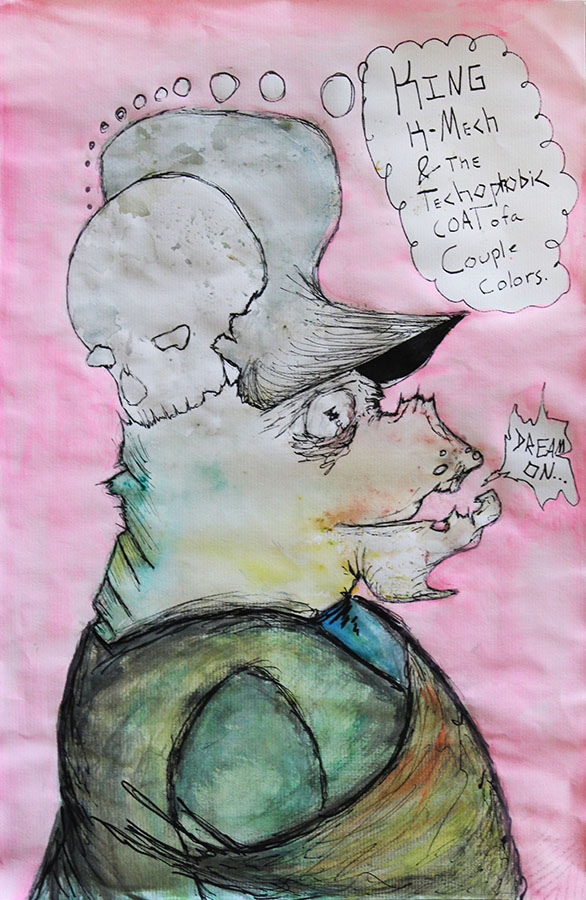 KING
K-Mech
& THE
TechOphobic
COAT of a
Couple
Colors.
DREAM
ON...